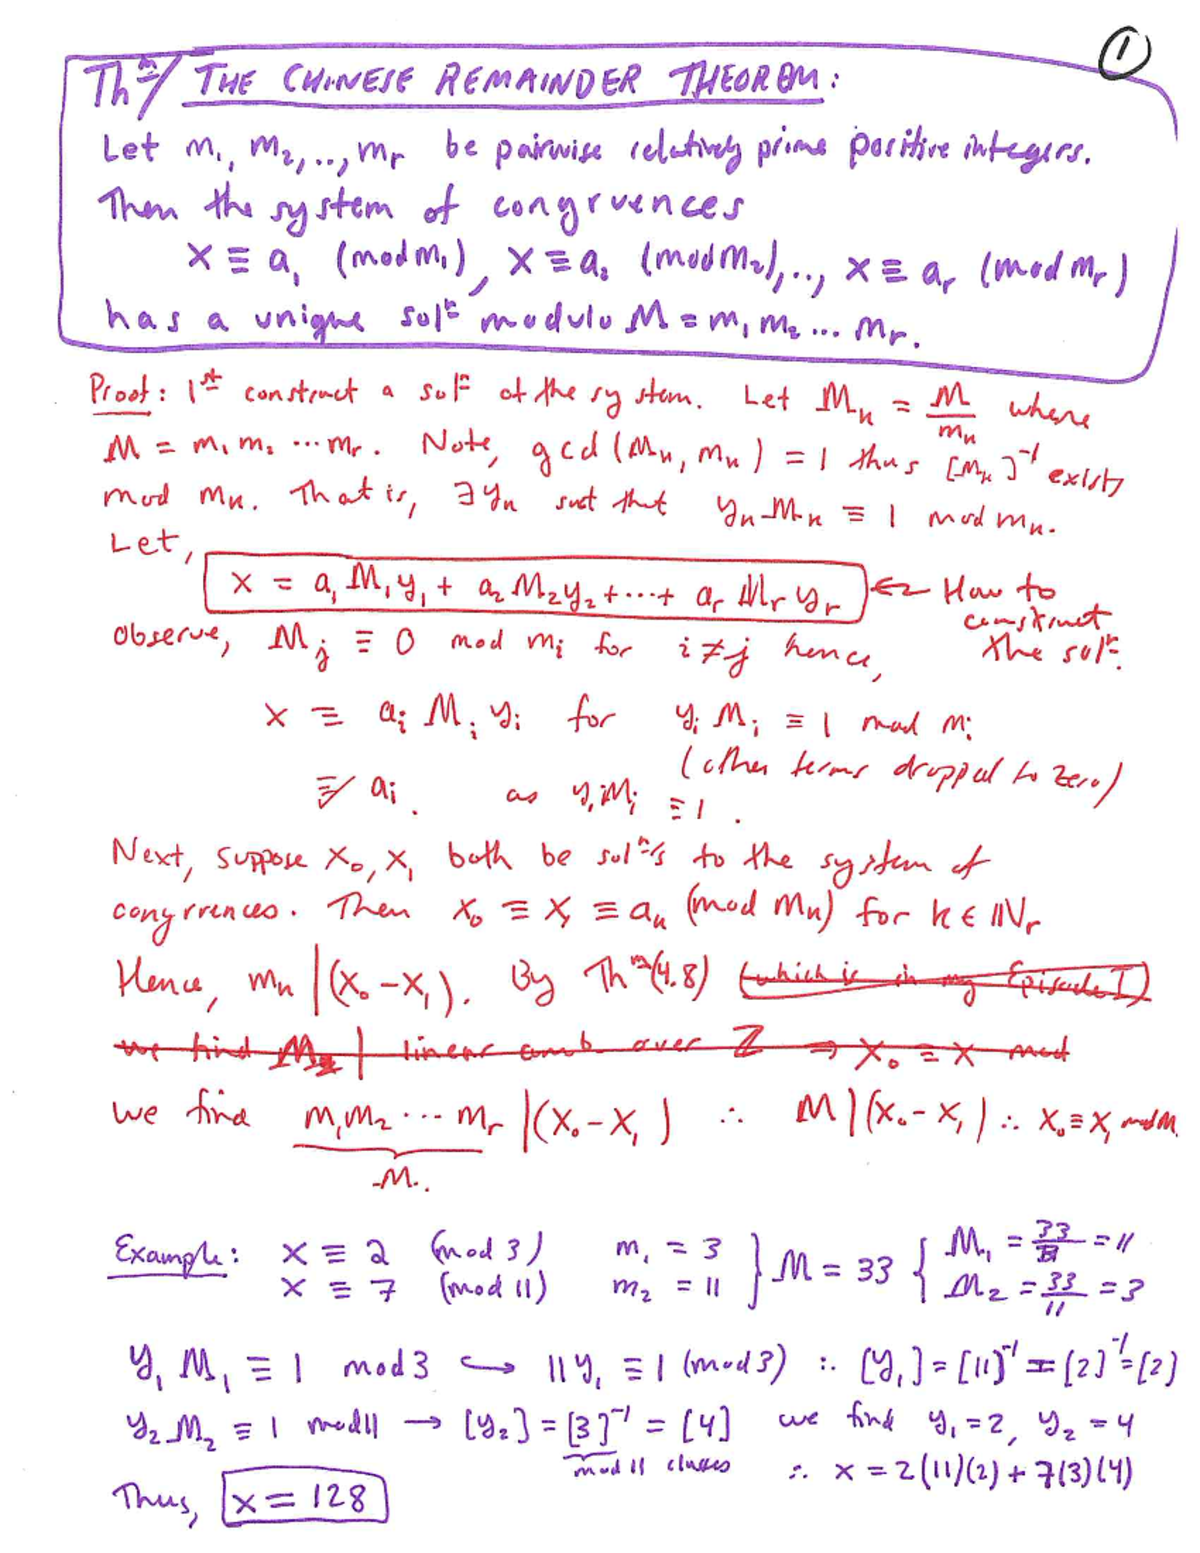 ①
Thᵐ/ THE CHINESE REMAINDER THEOREM:
Let m₁, m₂, .., mᵣ be pairwise relatively prime positive integers.
Then the system of congruences
x ≡ a₁ (mod m₁), x ≡ a₂ (mod m₂), .., x ≡ aᵣ (mod mᵣ)
has a unique solⁿ modulo M = m₁ m₂ ... mᵣ.
Proof: 1ˢᵗ construct a solⁿ of the system. Let Mₖ = M/mₖ where
M = m₁ m₂ ... mᵣ. Note, gcd(Mₖ, mₖ) = 1 thus [Mₖ]⁻¹ exists
mod mₖ. That is, ∃ yₖ such that yₖ Mₖ ≡ 1 mod mₖ.
Let,
x = a₁ M₁ y₁ + a₂ M₂ y₂ + ... + aᵣ Mᵣ yᵣ ← How to construct the solⁿ.
observe, Mⱼ ≡ 0 mod mᵢ for i ≠ j hence,
x ≡ aᵢ Mᵢ yᵢ for yᵢ Mᵢ ≡ 1 mod mᵢ
(other terms dropped to zero)
≡ aᵢ. as yᵢ Mᵢ ≡ 1.
Next, suppose x₀, x₁ both be solⁿs to the system of
congruences. Then x₀ ≡ x₁ ≡ aₖ (mod mₖ) for k ∈ ℕᵣ
Hence, mₖ | (x₀ - x₁). By Thᵐ(4.8) (which is in my Episode I)
we find M | linear comb over ℤ ⇒ x₀ = x mod
we find m₁ m₂ ... mᵣ | (x₀ - x₁) ∴ M | (x₀ - x₁) ∴ x₀ ≡ x₁ mod M.
M.
Example: x ≡ 2 (mod 3) m₁ = 3 } M = 33 { M₁ = 33/3 = 11
x ≡ 7 (mod 11) m₂ = 11 M₂ = 33/11 = 3
y₁ M₁ ≡ 1 mod 3 ↪ 11 y₁ ≡ 1 (mod 3) ∴ [y₁] = [11]⁻¹ = [2]⁻¹ = [2]
y₂ M₂ ≡ 1 mod 11 → [y₂] = [3]⁻¹ = [4] we find y₁ = 2, y₂ = 4
mod 11 classes ∴ x = 2(11)(2) + 7(3)(4)
Thus, x = 128